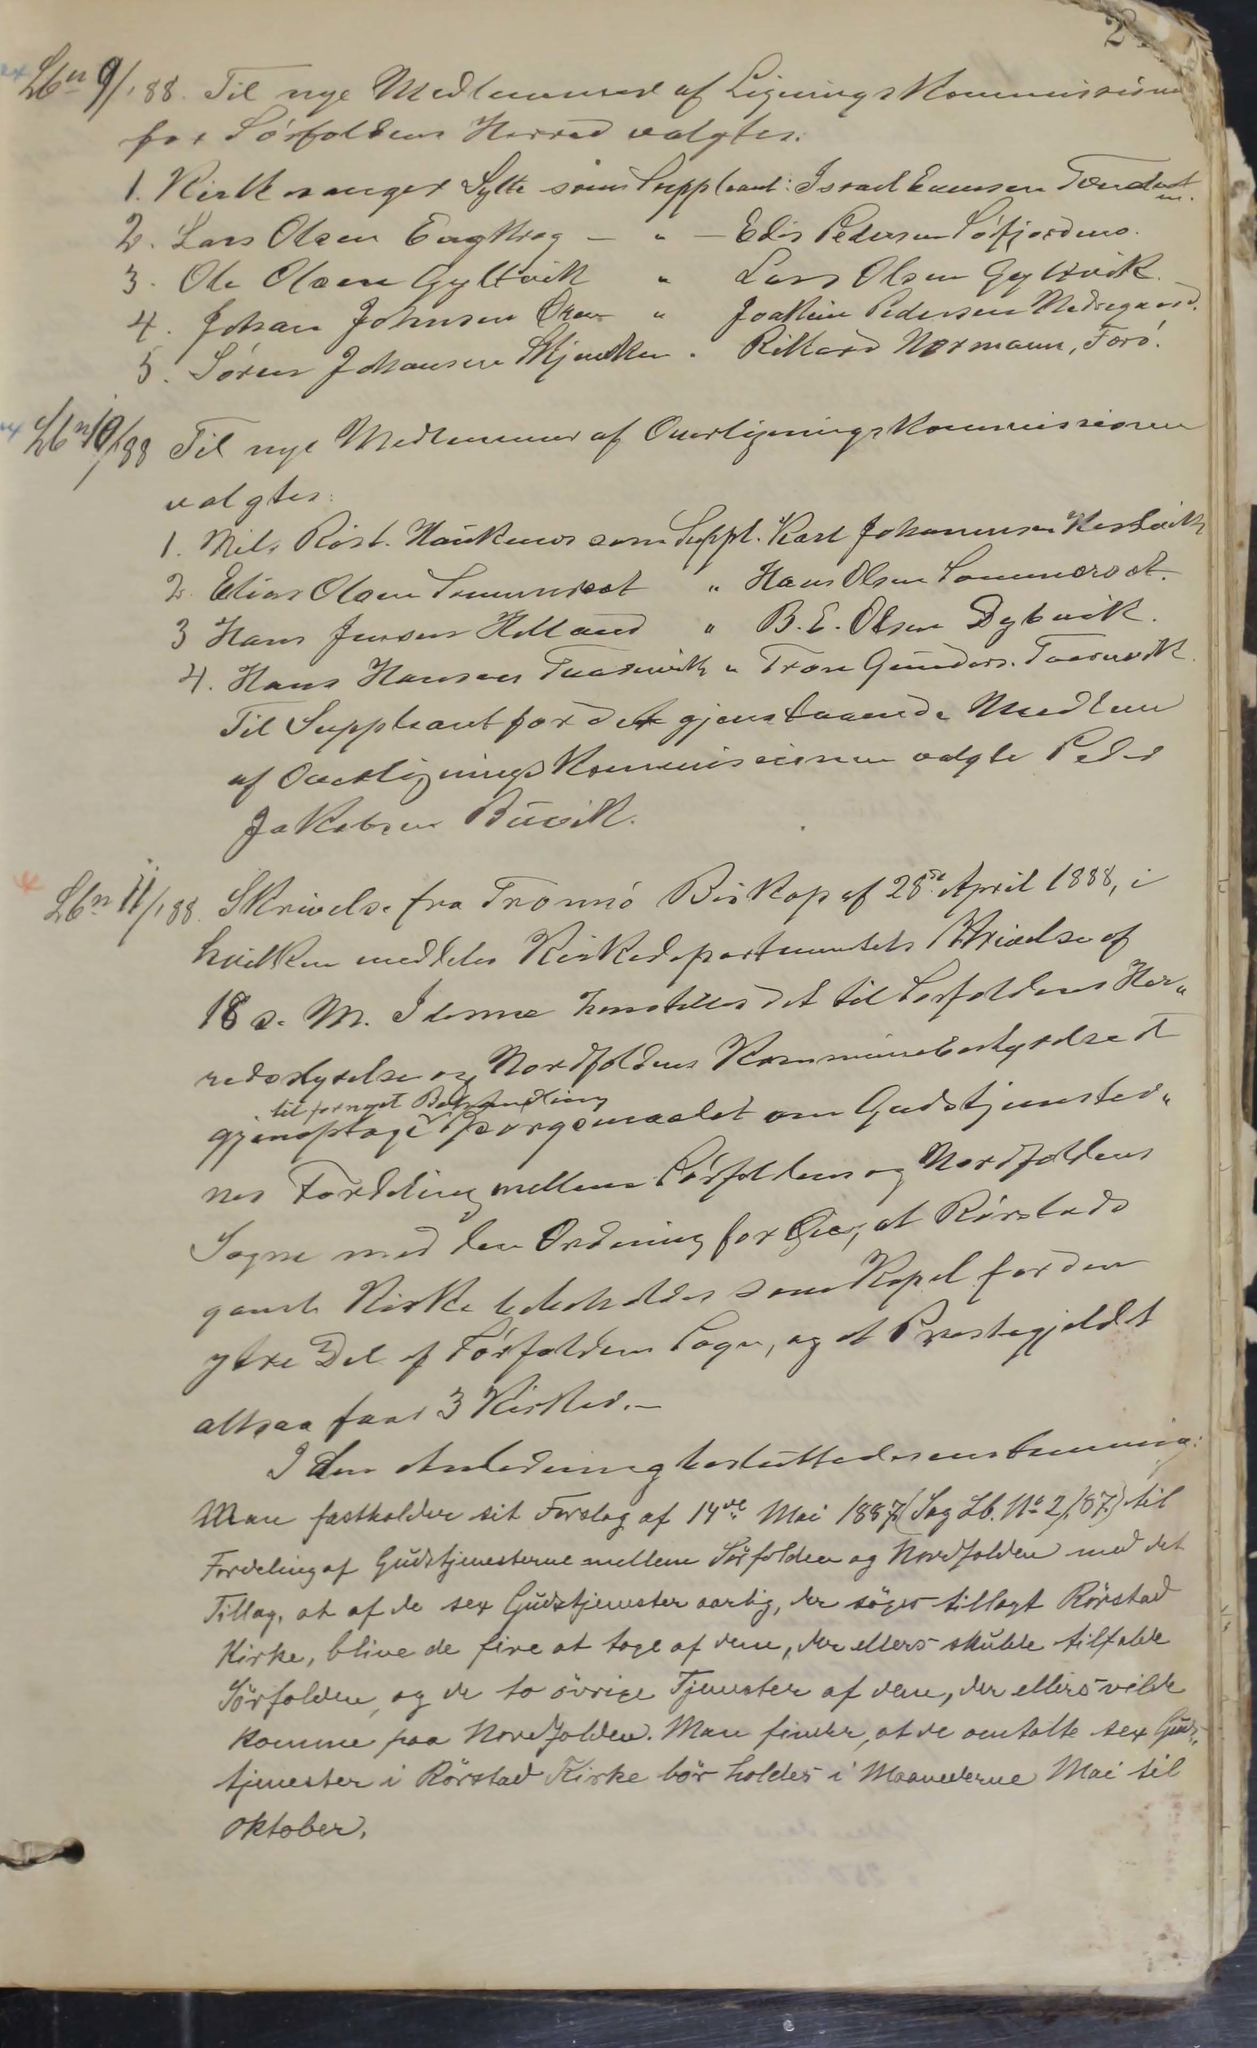 Lbn 9/188. Til nye Medlemmer af Ligningskommissionen
for Sørfoldens Herred valgtes:
1. Kirkesanger Sylte som Suppleant: Israel Evensen Tendost
2. Lars Olsen Engkrog – " – Edis Pedersen Löfjordmo.
3. Ole Olsen Gyltvik " Lars Olsen Gyltvik.
4. Johan Johnsen " Joakim Pedersen Nedregaard.
5. Sören Johansen " Rikhard Normann, Farö.
Lbn 10/188 Til nye Medlemmer af Overligningskommissionen
valgtes:
1. Nils Röst. som Suppl. Karl Johannesen
2. Elias Olsen Sommerset " Hans Olsen Sommerset.
3 Hans Jensen Helland " B. E. Olsen Dybvik.
4. Hans Hansen Taarnvik " Tron Gunders. Taarnvik.
Til Suppleant for det gjenstaaende Medlem
af Overligningskommissionen valgte Peder
Jakobsen Buvik.
Lbn 11/188. Skrivelse fra Tromsö Biskop af 28de April 1888, i
hvilken meddeles Kirkedepartementets Skrivelse af
18 s. M. I denne henstilles det til Sørfoldens Her„
redsstyrelse og Nordfoldens Kommunebestyrelse at
til fornyet Behandling
gjenoptage Spørgsmaalet om Gudstjenester„
nes Fordeling mellem Sörfoldens og Nordfoldens
Sogne med den Ordning for Øie, at Rörstads
gamle Kirke beholdes som Kapel for den
ytre Del af Sörfoldens Sogn, og at Prestegjeldet
altsaa faar 3 Kirker. –
I den Anledning besluttedes enstemmig:
Man fastholder sit Forslag af 14de Mai 1887 (Sag Lb. No 2/87) til
Fordeling af Gudstjenesterne mellem Sörfolden og Nordfolden med det
Tillæg, at af de sex Gudstjenester aarlig, der söges tillagt Rörstad
Kirke, blive de fire at tage af dem, der ellers skulde tilfalde
Sörfolden, og de to övrige Tjenester af dem, der ellers vilde
komme paa Nordfolden. Man finder, at de omtalte sex Guds„
tjenester i Rörstad Kirke bör holdes i Maanederne Mai til
Oktober.